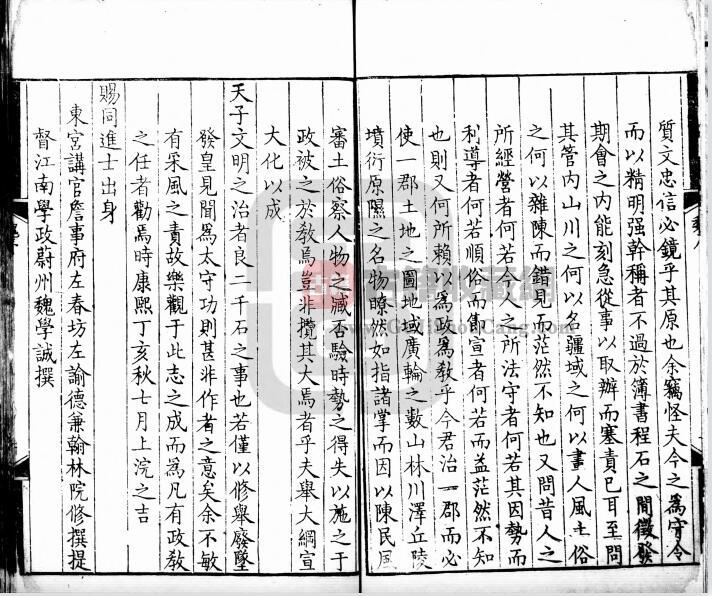 质文忠信必鏡乎其原也余竊怪夫今之為守令
而以精明强幹稱者不過於簿書程石之間徵發
期會之内能刻急從事以取辦而塞責已耳至問
其管内山川之何以名疆域之何以畫人風土俗
之何以雜陳而錯見而茫然不知也又問昔人之
所經營者何若今人之所法守者何若其因勢而
利導者何若順俗而節宣者何若而益茫然不知
也則又何所賴以為政為教乎今君治一郡而必
使一郡土地之圖地域廣輪之數山林川澤丘陵
墳衍原隰之名物瞭然如指諸掌而因以陳民風
審土俗察人物之臧否驗時勢之得失以施之于
政被之於教焉豈非攬其大焉者乎夫舉大綱宣
大化以成
天子文明之治者良二千石之事也若僅以修舉廢墜
發皇見聞為太守功則甚非作者之意矣余不敏
有采風之責故樂觀于此志之成而為凡有政教
之任者勸焉時康熙丁亥秋七月上浣之吉
賜同進士出身
東宮講官詹事府左春坊左諭德兼翰林院修撰提
督江南學政蔚州魏學誠撰